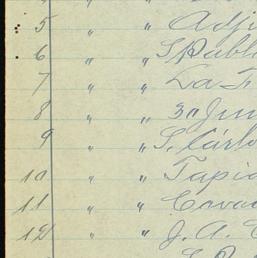 5 " " Adj
6 " " S. Pabl
7 " " La
8 " " 30 Jun
9 " " S. Cárlo
10 " " Tapia
11 " "
12 " " J. A.